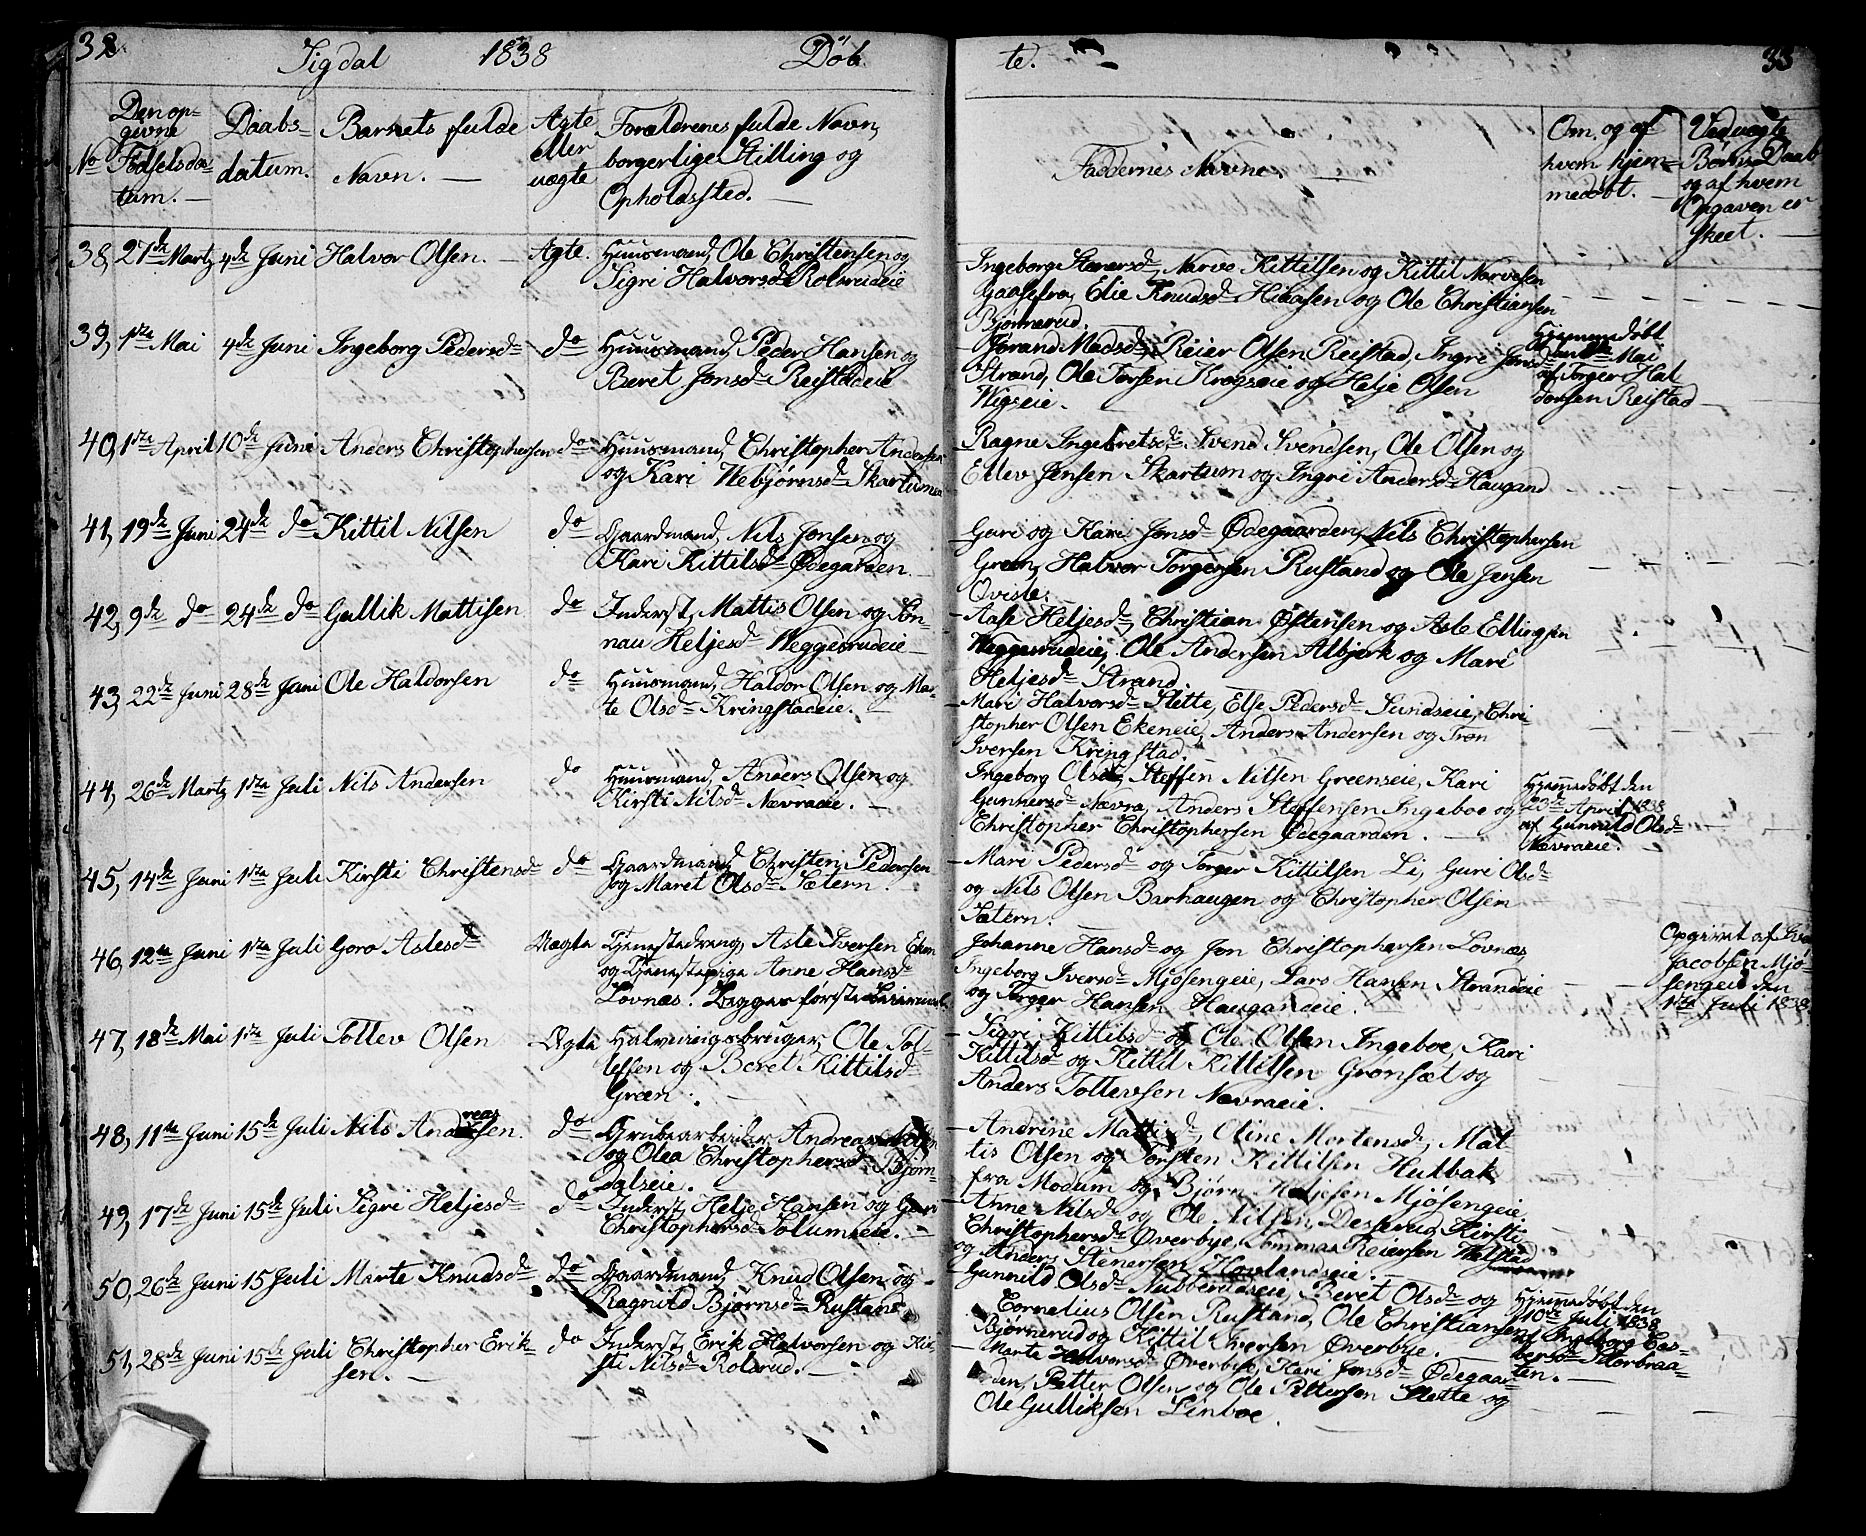 32
Sigdal 1838 Döb
No Den opgivne Fødselsdatum.
Daabsdatum.
Barnets fulde Navn.
Ægte eller uægte
Forældrenes fulde Navn, borgerlige Stilling og Opholdssted.
38, 27de Martz 4de Juni Halvor Olsen. Ægte. Huusmand, Ole Christensen og
Sigri Halvorsd Rolsrudeie
39, 1ste Mai 4de Juni Ingeborg Pedersd do Huusmand, Peder Hansen og
Beret Jonsd Reistadeie
40, 1ste April 10de Juni Anders Christophersen do Huusmand, Christopher Andersen
og Kari Webjørnsd Skartumeie
41, 19de Juni 24de do Kittil Nilsen do Gaardmand, Nils Jonsen og
Kari Kittilsd Ødegarden
42, 9de do 24de do Gullik Mattisen do Inderst, Mattis Olsen og Løn-
nau Heljesd Weggesrudeie
43, 22de Juni 28de Juni Ole Haldorsen do Huusmand, Haldor Olsen og Mar-
te Olsd Kringstadeie.
44, 26de Martz 1ste Juli Nils Andersen do Huusmand, Anders Olsen og
Kirsti Nilsd Nævraeie.
45, 14de Juni 1ste Juli Kirsti Christensd do Gaardmand Christen Pedersen
og Maret Olsd Sætern
46, 12te Juni 1ste Juli Goro Aslesd Uægte Tjenestedreng, Asle Iversen
og Tjenestepige Anne Hansd
Lovnæs. Begges første Leiermaal.
47, 18de Mai 1ste Juli Tollev Olsen Ægte Halvveiingsbruger, Ole Tol-
lefsen og Beret Kittilsd
Green.
48, 11te Juni 15de Juli Nils Andreassen. do Grubearbeider Andreas Nilsen
og Olea Christophersd Bjørn-
dalseie.
49, 17de Juni 15de Juli Sigri Heljesd do Inderst, Helje Hansen og Guri
Christophersd Solumseie.
50, 26de Juni 15 Juli Marte Knudsd do Gaardmand, Knud Olsen og
Ragnild Bjørnsd Rustand
51, 28de Juni 15de Juli Christopher Erik-
sen. do Inderst, Erik Halvorsen og Kir-
sti Nilsd Rolsrud.
te. 33
Faddernes Navne.
Om, og af hvem hjemmedøbt.
Ved uægte Børns Daab og af hvem Opgaven er skeet.
Ingeborg Stenersd, Narve Kittilsen og Kittil Narvesen
Gaasefra, Elie Knudsd Hiaasen og Ole Christiansen
Bjørnerud.
Jørand Madsd, Reier Olsen Reistad, Ingri Jonsd
Strand, Ole Torsen Kragseie og Helje Olsen
Wigseie.
Hjemmedøbt
Mai
af Torger Hal
dorsen Reistad
Ragne Ingebretsd Svend Svendsen, Ole Olsen og
Ellev Jensen Skartum og Ingri Andersd Haugand
Guri og Kari Jonsd Ødegaarden, Nils Christophersen
Green, Halvor Torgersen Rustand og Ole Jensen
Qvisle.
Aase Heljesd, Christian Østensen og Asle Ellingsen
Weggesrudeie, Ole Andersen Albjerk og Mari
Heljesd Strand.
Mari Halvorsd Slette, Else Pedersd Sundseie, Chri-
stopher Olsen Ekeneie, Anders Andersen og Tron
Iversen Kringstad.
Ingeborg Olsd, Steffen Nilsen Greenseie, Kari
Gunnersd Nævra, Anders Steffensen Ingeboe og
Christopher Christophersen Ødegaarden.
Hjemmedøbt den
23de April 1838
af Gunnild Olsd
Nævraeie.
Mari Pedersd og Torger Kittilsen Li, Guri Olsd
og Nils Olsen Barhaugen og Christopher Olsen
Sætern.
Johanne Hansd og Jon Christophersen Lovnæs
Ingeborg Iversd Mjøsengeie, Lars Hansen Strandeie
og Torger Hansen Haugandeie.
Opgivet af
Jacobsen Mjø-
sengeie den
1ste Juli 1838
Sigri Kittilsd og Ole Olsen Ingeboe, Kari
Kittilsd og Kittil Kittilsen Grønsæt og
Anders Tollevsen Nævraeie.
Andrine Mattisd, Oline Mortensd, Mat
tis Olsen og Torsten Kittilsen Hulbak
fra Modum og Bjørn Heljesen Mjøsengeie
Anne Nilsd og Ole Nilsen Desserud, Kirsti
Christophersd Øverbye, Tommas Reiersen
og Anders Stenersen Hovlandseie.
Gunnild Olsd Nubberudseie, Beret Olsd og
Cornelius Olsen Rustand, Ole Christiansen
Bjørnerud og Kittil Iversen Øverbye.
Hjemmedøbt den
10de Juli 1838
af Ingeborg Es-
bersd Storbraa-
ten.
Marte Halvorsd Øverbye, Kari Jonsd Ødegaar-
den, Petter Olsen og Ole Pettersen Slette og
Ole Gulliksen Lindboe.